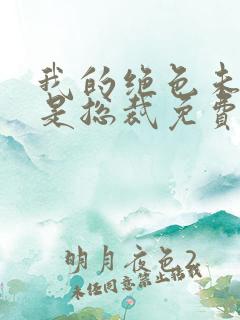 我的绝色未
是总裁免费
明月夜色2
未经同意禁止转载